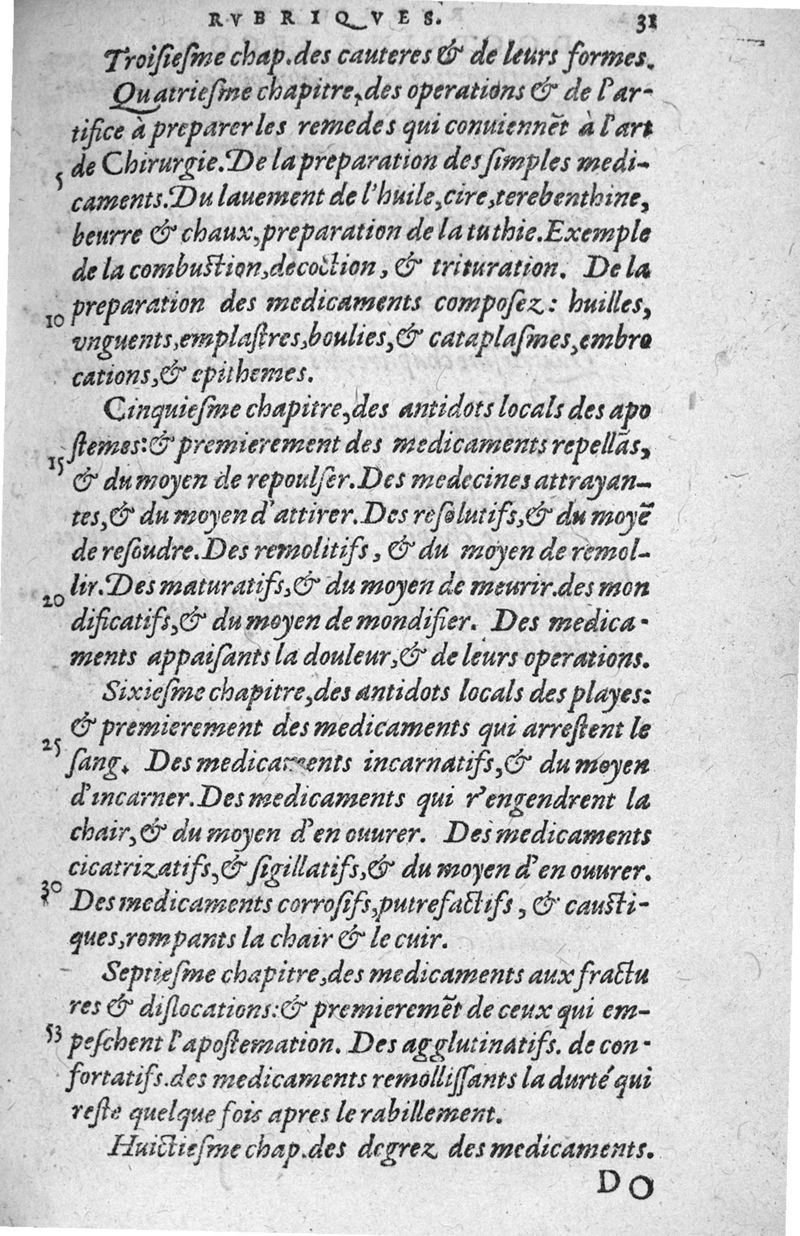 RVBRIQVES. 31
Troisiesme chap.des cauteres & de leurs formes.
Quatriesme chapitre,des operations & de l'ar-
tifice à preparer les remedes qui conuiennẽt à l'art
5 de Chirurgie.De la preparation des simples medi-
caments.Du lauement de l'huile,cire,terebenthine,
beurre & chaux,preparation de la tuthie.Exemple
de la combustion,decoction, & trituration. De la
10 preparation des medicaments composez: huilles,
vnguents,emplastres,boulies,& cataplasmes,embro
cations,& epithemes.
Cinquiesme chapitre,des antidots locals des apo
15 stemes:& premierement des medicaments repellãs,
& du moyen de repoulser.Des medecines attrayan-
tes,& du moyen d'attirer.Des resolutifs,& du moyẽ
de resoudre.Des remolitifs, & du moyen de remol-
20 lir.Des maturatifs,& du moyen de meurir.des mon
dificatifs,& du moyen de mondifier. Des medica-
ments appaisants la douleur,& de leurs operations.
Sixiesme chapitre,des antidots locals des playes:
& premierement des medicaments qui arrestent le
25 sang. Des medicaments incarnatifs,& du moyen
d'incarner.Des medicaments qui r'engendrent la
chair,& du moyen d'en ouurer. Des medicaments
cicatrizatifs,& sigillatifs,& du moyen d'en ouurer.
30 Des medicaments corrosifs,putrefactifs, & causti-
ques,rompants la chair & le cuir.
Septiesme chapitre,des medicaments aux fractu
res & dislocations:& premieremẽt de ceux qui em-
53 peschent l'apostemation. Des agglutinatifs. de con-
fortatifs.des medicaments remollissants la durté qui
reste quelque fois apres le rabillement.
Huictiesme chap.des degrez des medicaments.
DO